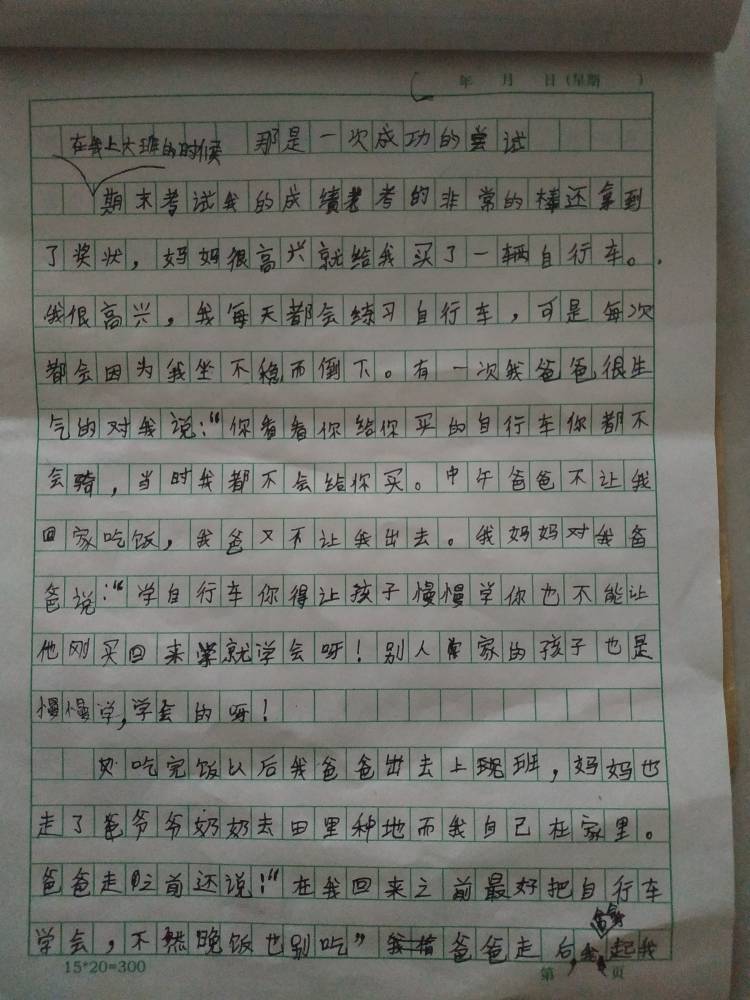 年 月 日(星期 )
在我上大班的时候 那是一次成功的尝试
期末考试我的成绩考的非常的棒还拿到
了奖状，妈妈很高兴就给我买了一辆自行车。
我很高兴，我每天都会练习自行车，可是每次
都会因为我坐不稳而倒下。有一次我爸爸很生
气的对我说：“你看看你给你买的自行车你都不
会骑，当时我都不会给你买。中午爸爸不让我
回家吃饭，我爸又不让我出去。我妈妈对我爸
爸说：“学自行车你得让孩子慢慢学你也不能让
他刚买回来就学会呀！别人家的孩子也是
慢慢学，学会的呀！
吃完饭以后我爸爸出去上班，妈妈也
走了爷爷奶奶去田里种地而我自己在家里。
爸爸走之前还说！“在我回来之前最好把自行车
学会，不然晚饭也别吃”爸爸走后，我起我
15*20=300
第 页